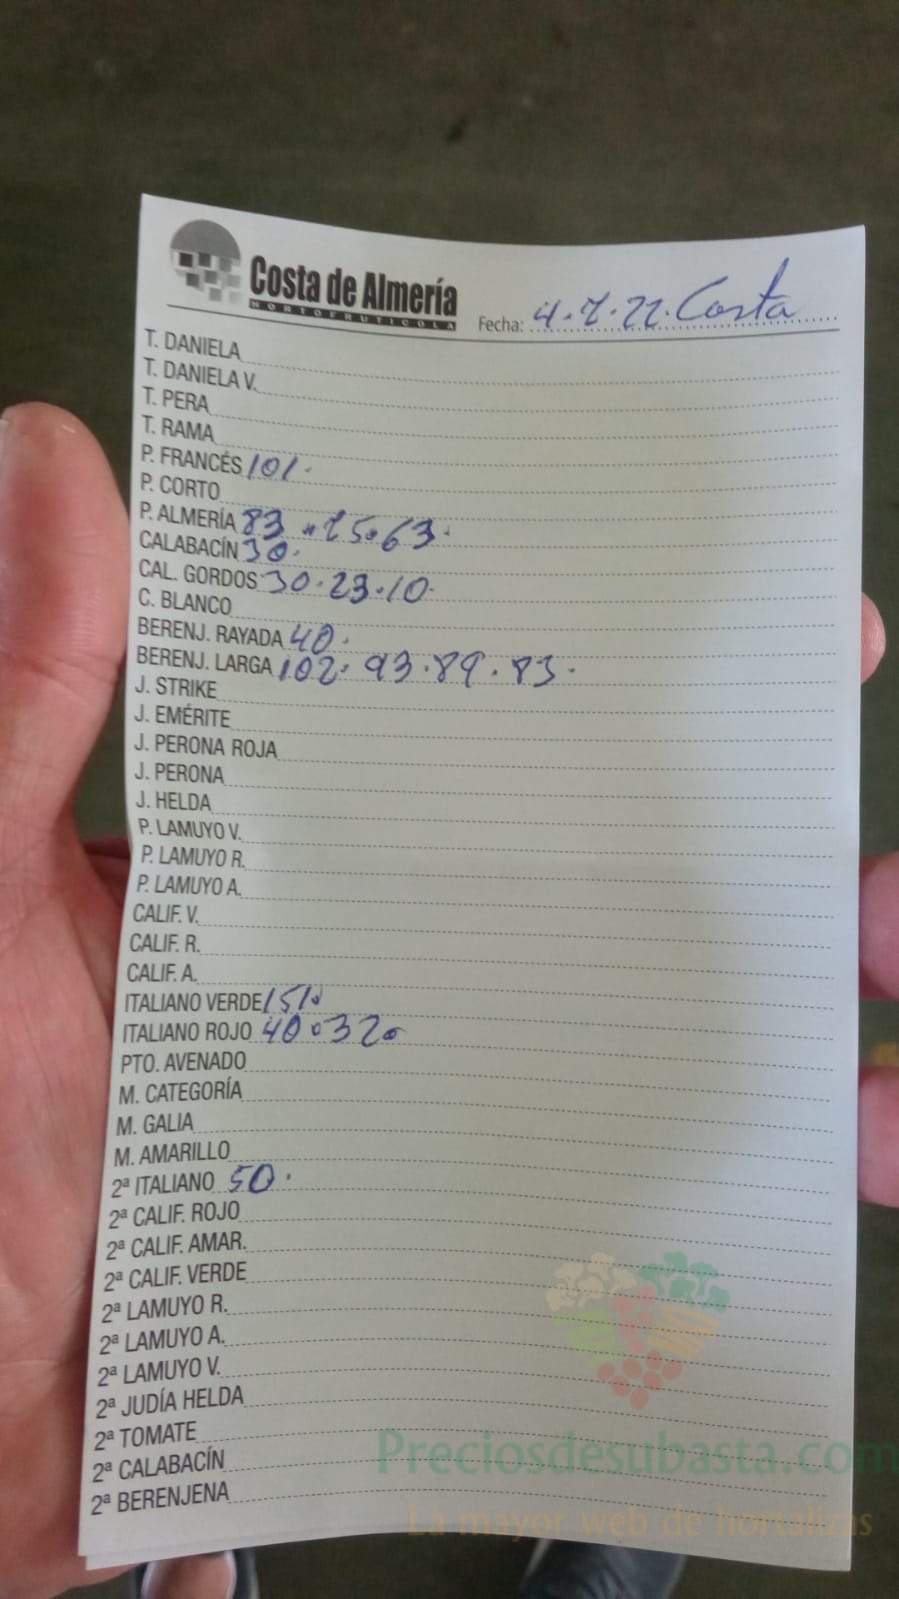 Costa de Almería
HORTOFRUTICOLA
Fecha: 4.7.22. Costa
T. DANIELA
T. DANIELA V.
T. PERA
T. RAMA
P. FRANCÉS 101.
P. CORTO
P. ALMERÍA 83 . 75.63.
CALABACÍN 30.
CAL. GORDOS 30.23.10.
C. BLANCO
BERENJ. RAYADA 40.
BERENJ. LARGA 102. 93.89.83.
J. STRIKE
J. EMÉRITE
J. PERONA ROJA
J. PERONA
J. HELDA
P. LAMUYO V.
P. LAMUYO R.
P. LAMUYO A.
CALIF. V.
CALIF. R.
CALIF. A.
ITALIANO VERDE 151.
ITALIANO ROJO 40.32.
PTO. AVENADO
M. CATEGORÍA
M. GALIA
M. AMARILLO
2ª ITALIANO 50.
2ª CALIF. ROJO
2ª CALIF. AMAR.
2ª CALIF. VERDE
2ª LAMUYO R.
2ª LAMUYO A.
2ª LAMUYO V.
2ª JUDÍA HELDA
2ª TOMATE
2ª CALABACÍN
2ª BERENJENA
Preciosdesubasta.com
La mayor web de hortalizas